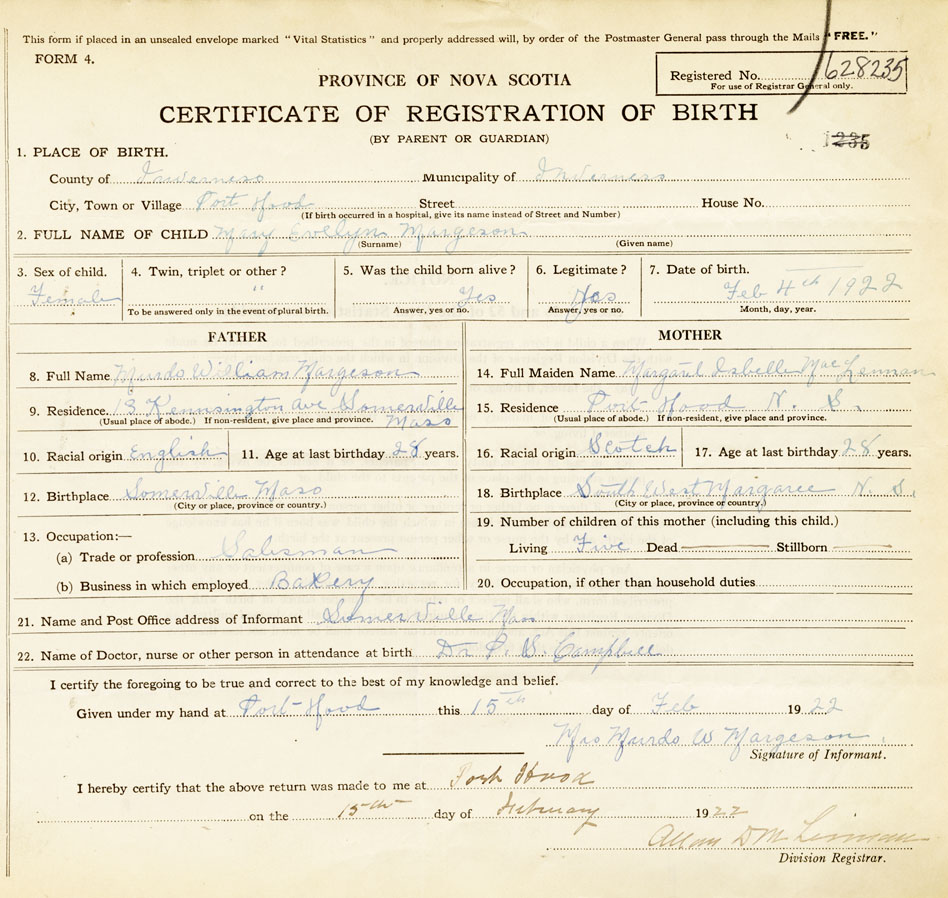 This form if placed in an unsealed envelope marked "Vital Statistics" and properly addressed will, by order of the Postmaster General pass through the Mails "FREE."
FORM 4.
Registered No. 628235
For use of Registrar General only.
PROVINCE OF NOVA SCOTIA
CERTIFICATE OF REGISTRATION OF BIRTH
(BY PARENT OR GUARDIAN)
1235
1. PLACE OF BIRTH.
County of Inverness Municipality of Inverness
City, Town or Village Port Hood Street House No.
(If birth occurred in a hospital, give its name instead of Street and Number)
2. FULL NAME OF CHILD Mary Evelyn Margeson
(Surname) (Given name)
3. Sex of child. 4. Twin, triplet or other? 5. Was the child born alive? 6. Legitimate? 7. Date of birth.
Female " Yes Yes Feb 4th 1922
To be answered only in the event of plural birth. Answer, yes or no. Answer, yes or no. Month, day, year.
FATHER
8. Full Name Murdo William Margeson
9. Residence. 13 Kennsington Ave Somerville
(Usual place of abode.) If non-resident, give place and province. Mass
10. Racial origin English 11. Age at last birthday 28 years.
12. Birthplace Somerville Mass
(City or place, province or country.)
13. Occupation:—
(a) Trade or profession Salesman
(b) Business in which employed Bakery
MOTHER
14. Full Maiden Name Margaret Isbelle MacLennan
15. Residence Port Hood N. S.
(Usual place of abode.) If non-resident, give place and province.
16. Racial origin Scotch 17. Age at last birthday 28 years.
18. Birthplace South West Margaree N. S.
(City or place, province or country.)
19. Number of children of this mother (including this child.)
Living Five Dead Stillborn
20. Occupation, if other than household duties
21. Name and Post Office address of Informant Somerville Mass
22. Name of Doctor, nurse or other person in attendance at birth Dr P. S. Campbell
I certify the foregoing to be true and correct to the best of my knowledge and belief.
Given under my hand at Port Hood this 15th day of Feb 1922
Mrs Murdo W Margeson.
Signature of Informant.
I hereby certify that the above return was made to me at Port Hood
on the 15th day of February 1922
Allan D
Division Registrar.